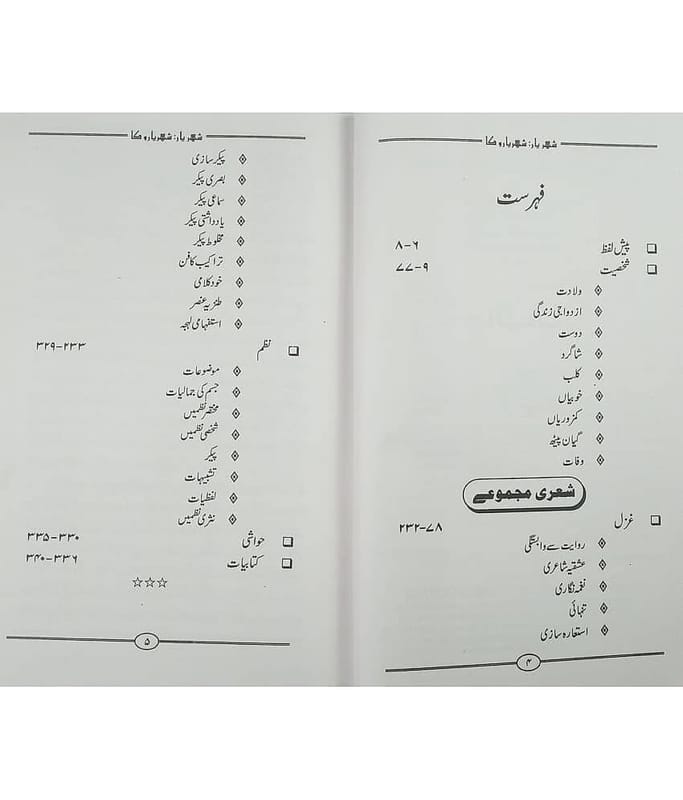 شہریار: شہریاروں کا
فہرست
❑ پیش لفظ ۶-۸
❑ شخصیت ۹-۷۷
ولادت
ازدواجی زندگی
دوست
شاگرد
کلب
خوبیاں
کمزوریاں
گیان پیٹھ
وفات
شعری مجموعے
❑ غزل ۷۸-۲۳۲
روایت سے وابستگی
عشقیہ شاعری
نغمہ نگاری
تنہائی
استعارہ سازی
۴
شہریار: شہریاروں کا
پیکر سازی
بصری پیکر
سماعی پیکر
یادداشتی پیکر
مخلوط پیکر
تراکیب کا فن
خود کلامی
طنزیہ عنصر
استفہامی لہجہ
❑ نظم ۲۳۳-۳۲۹
موضوعات
جسم کی جمالیات
مختصر نظمیں
شخصی نظمیں
پیکر
تشبیہات
لفظیات
نثری نظمیں
❑ حواشی ۳۳۰-۳۳۵
❑ کتابیات ۳۳۶-۳۴۰
☆☆☆
۵